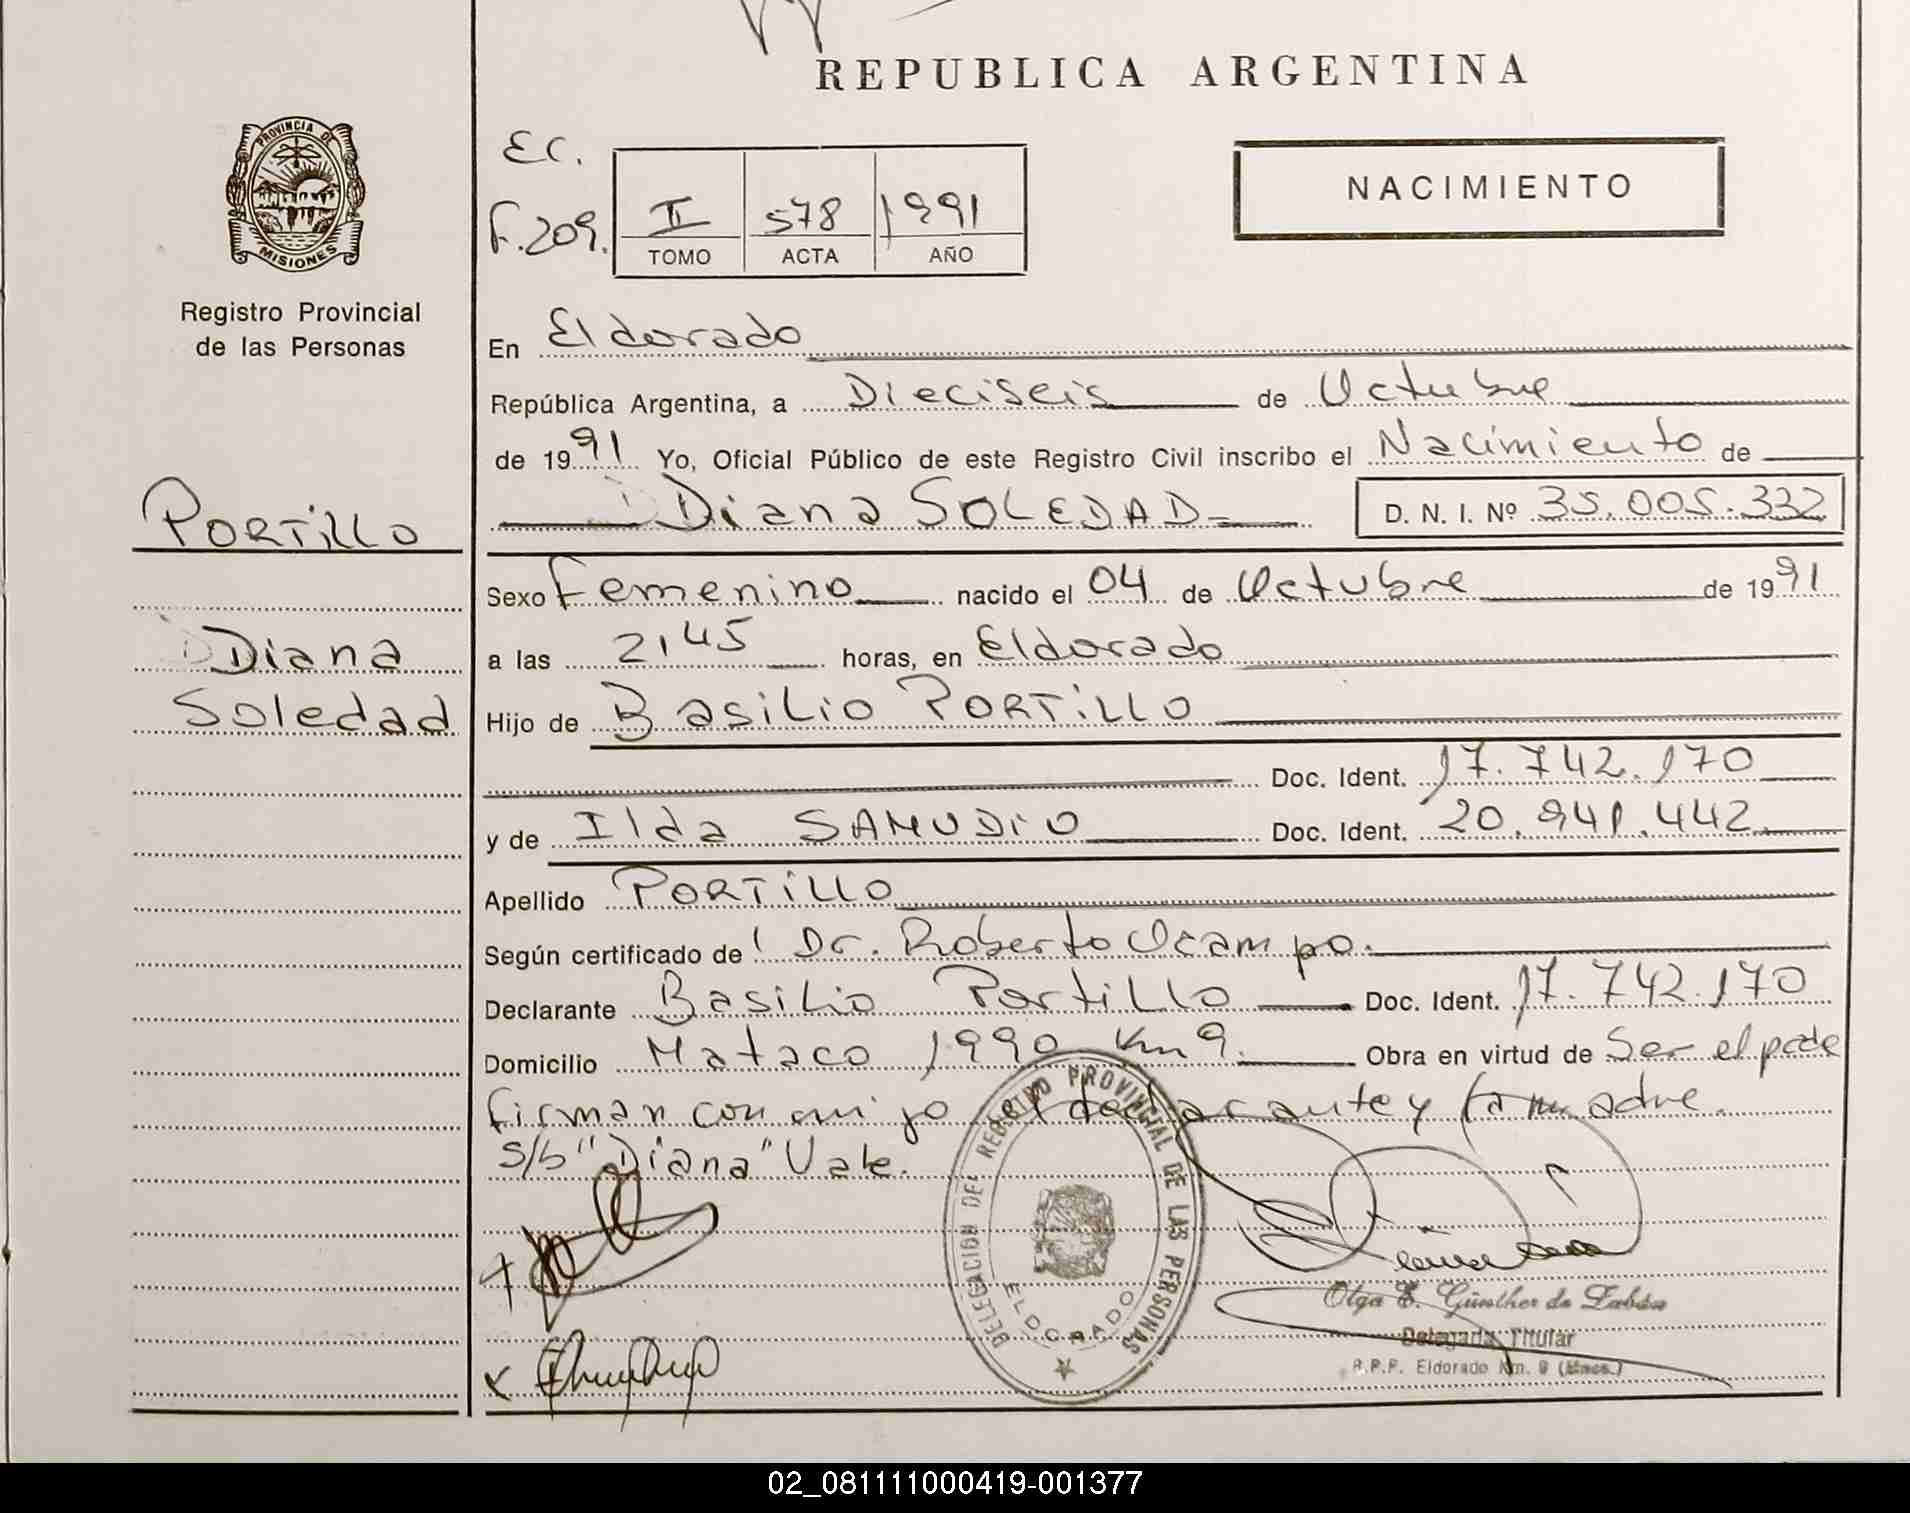 REPUBLICA ARGENTINA
PROVINCIA DE
MISIONES
Registro Provincial
de las Personas
EC.
F. 209.
II 578 1991
TOMO ACTA AÑO
NACIMIENTO
En Eldorado
República Argentina, a Dieciseis de Octubre
de 1991 Yo, Oficial Público de este Registro Civil inscribo el Nacimiento de
Diana SOLEDAD D. N. I. Nº 35.005.332
PORTILLO
Diana
Soledad
Sexo Femenino nacido el 04 de Octubre de 1991
a las 2145 horas, en Eldorado
Hijo de Basilio PORTILLO
Doc. Ident. 17.742.170
y de Ilda SAMUDIO Doc. Ident. 20.941.442
Apellido PORTILLO
Según certificado de Dr. Roberto Ocampo.
Declarante Basilio Portillo Doc. Ident. 17.742.170
Domicilio Mataco 1990 Km 9. Obra en virtud de Ser el padre
firman conmigo el declarante y la madre.
S/b "Diana" Vale.
DELEGACION DEL REGISTRO PROVINCIAL DE LAS PERSONAS
ELDORADO
Olga E. Günther de Zabán
Delegada Titular
R.P.P. Eldorado Km. 9 (Mnes.)
02_081111000419-001377